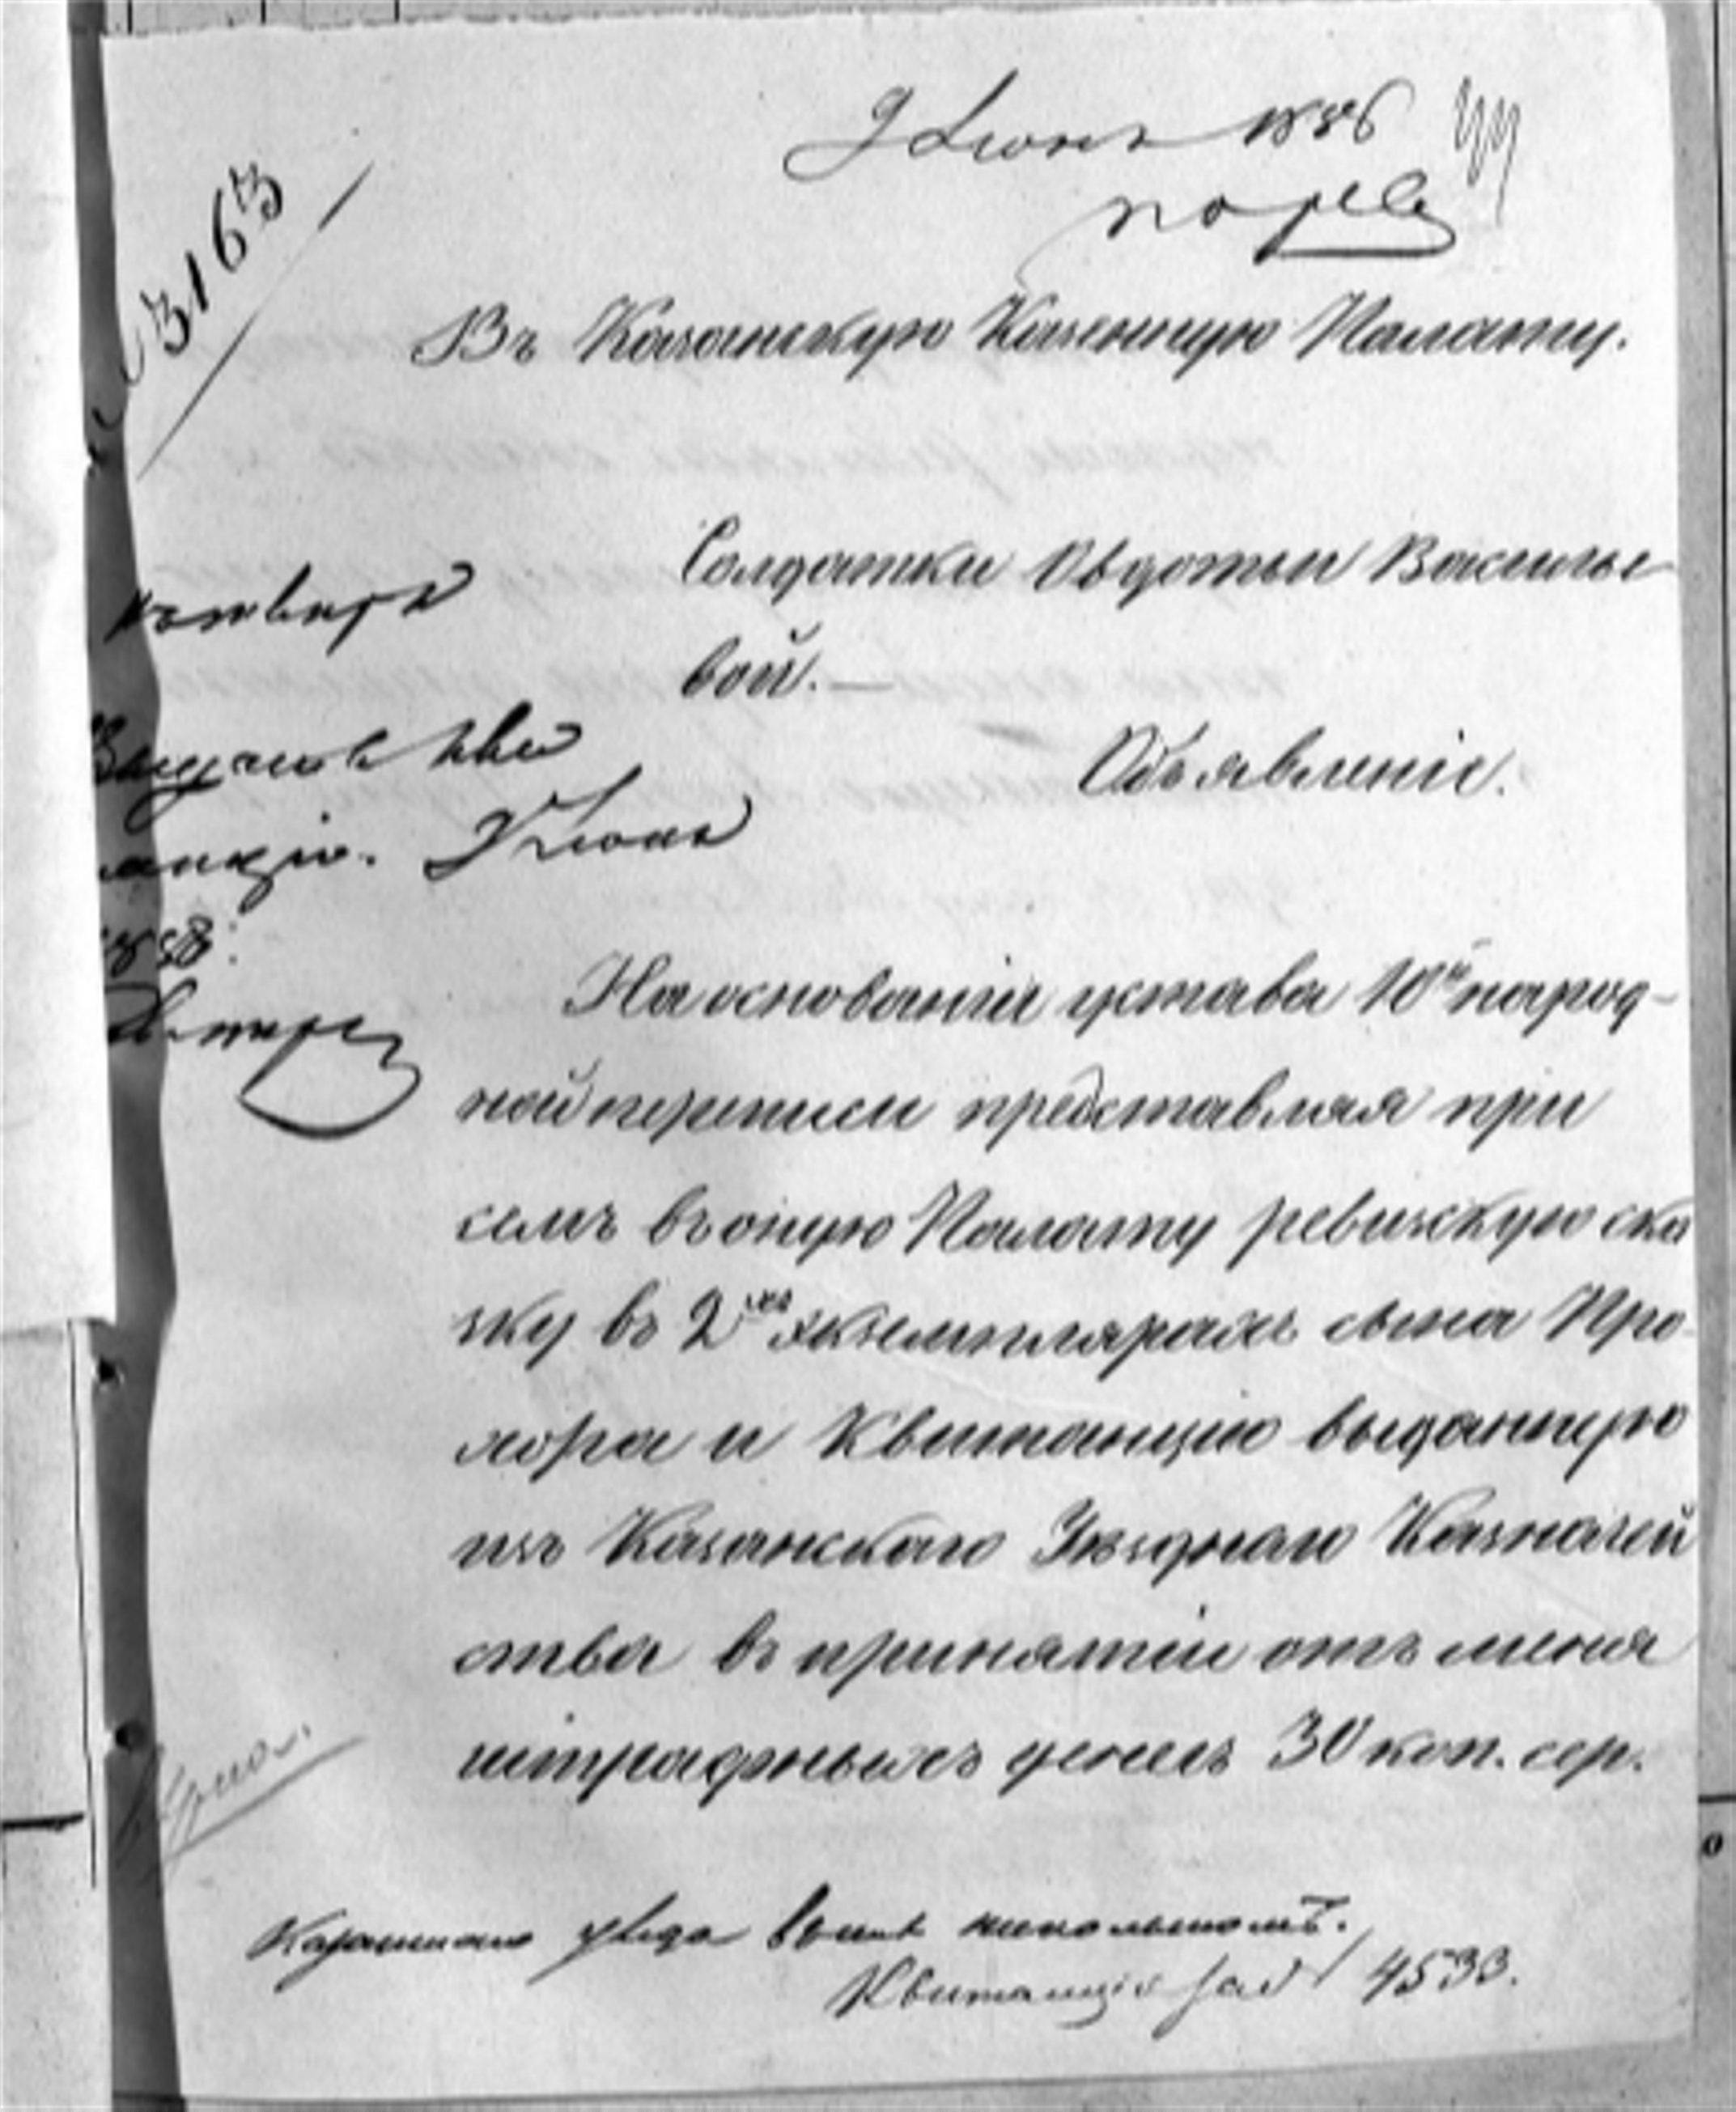 9 Июня 1858
3163
Въ Казанскую Казенную Палату.
Солдатки Овдотьи Василье
вой.—
Объявленіе.
Июня
1858.
На основаніи устава 10й народ-
ной переписи представляя при
семъ въ оную Палату ревизскую ска
зку въ 2хъ экземплярахъ сына Про
хора и Квитанцію выданную
изъ Казанскаго Уѣзднаго Казначей
ства въ принятіи отъ меня
штрафныхъ денегъ 30 коп. сер.
Казанскаго уѣзда
Квитанція за № 4533.